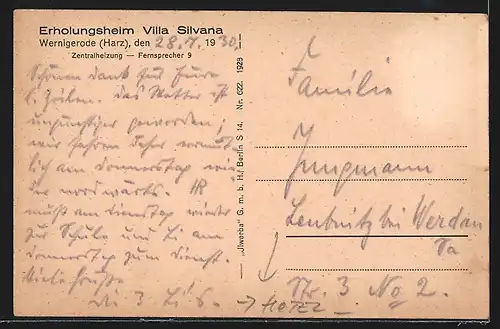 Erholungsheim Villa Silvana
Wernigerode (Harz), den 28.7. 1930.
Zentralheizung — Fernsprecher 9
Schönen Dank für Eure
l. Zeilen. Das Wetter ist
ungünstiger geworden;
wir fahren daher
am Donnerstag wie-
der nordwärts.
muß am Dienstag wieder
zur Schule und am
Donnerstag zum Dienst.
Viele Grüße
„Ulwerba" G. m. b. H., Berlin S 14. Nr. 622. 1928
Familie
Jungmann
Leubnitz bei Werdau
Sa
Nr. 3 No 2.
→ HOTEL